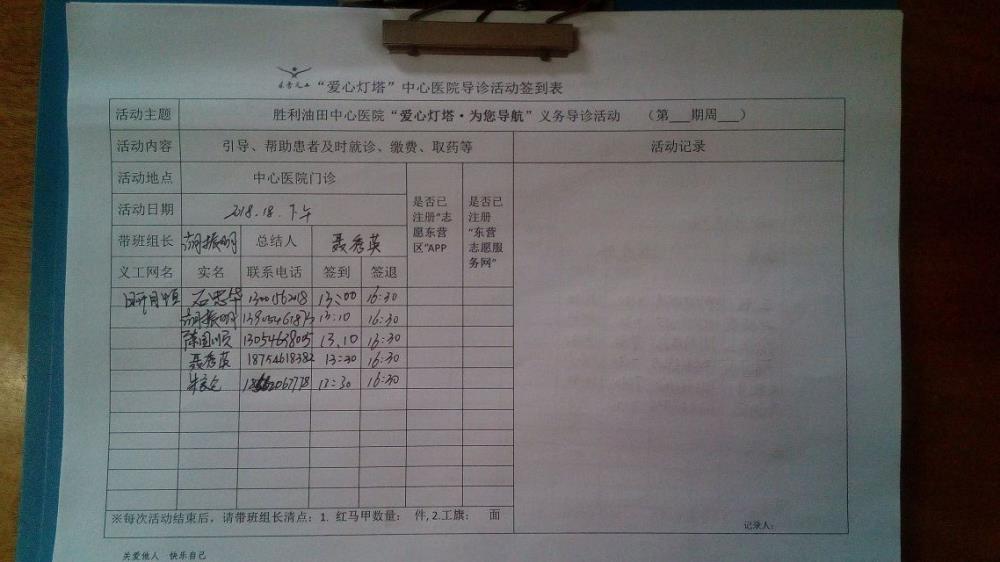 东营义工
“爱心灯塔”中心医院导诊活动签到表
活动主题 胜利油田中心医院“爱心灯塔·为您导航”义务导诊活动 （第___期周___）
活动内容 引导、帮助患者及时就诊、缴费、取药等 活动记录
活动地点 中心医院门诊
是否已注册“志愿东营区”APP
是否已注册“东营志愿服务网”
活动日期 下午
带班组长 胡振明 总结人 聂秀英
义工网名 实名 联系电话 签到 签退
13:00 16:30
胡振明 13:10 16:30
13:10 16:30
聂秀英 18754618382 13:30 16:30
16:30
※每次活动结束后，请带班组长清点：1. 红马甲数量： 件, 2.工旗： 面
记录人：
关爱他人 快乐自己